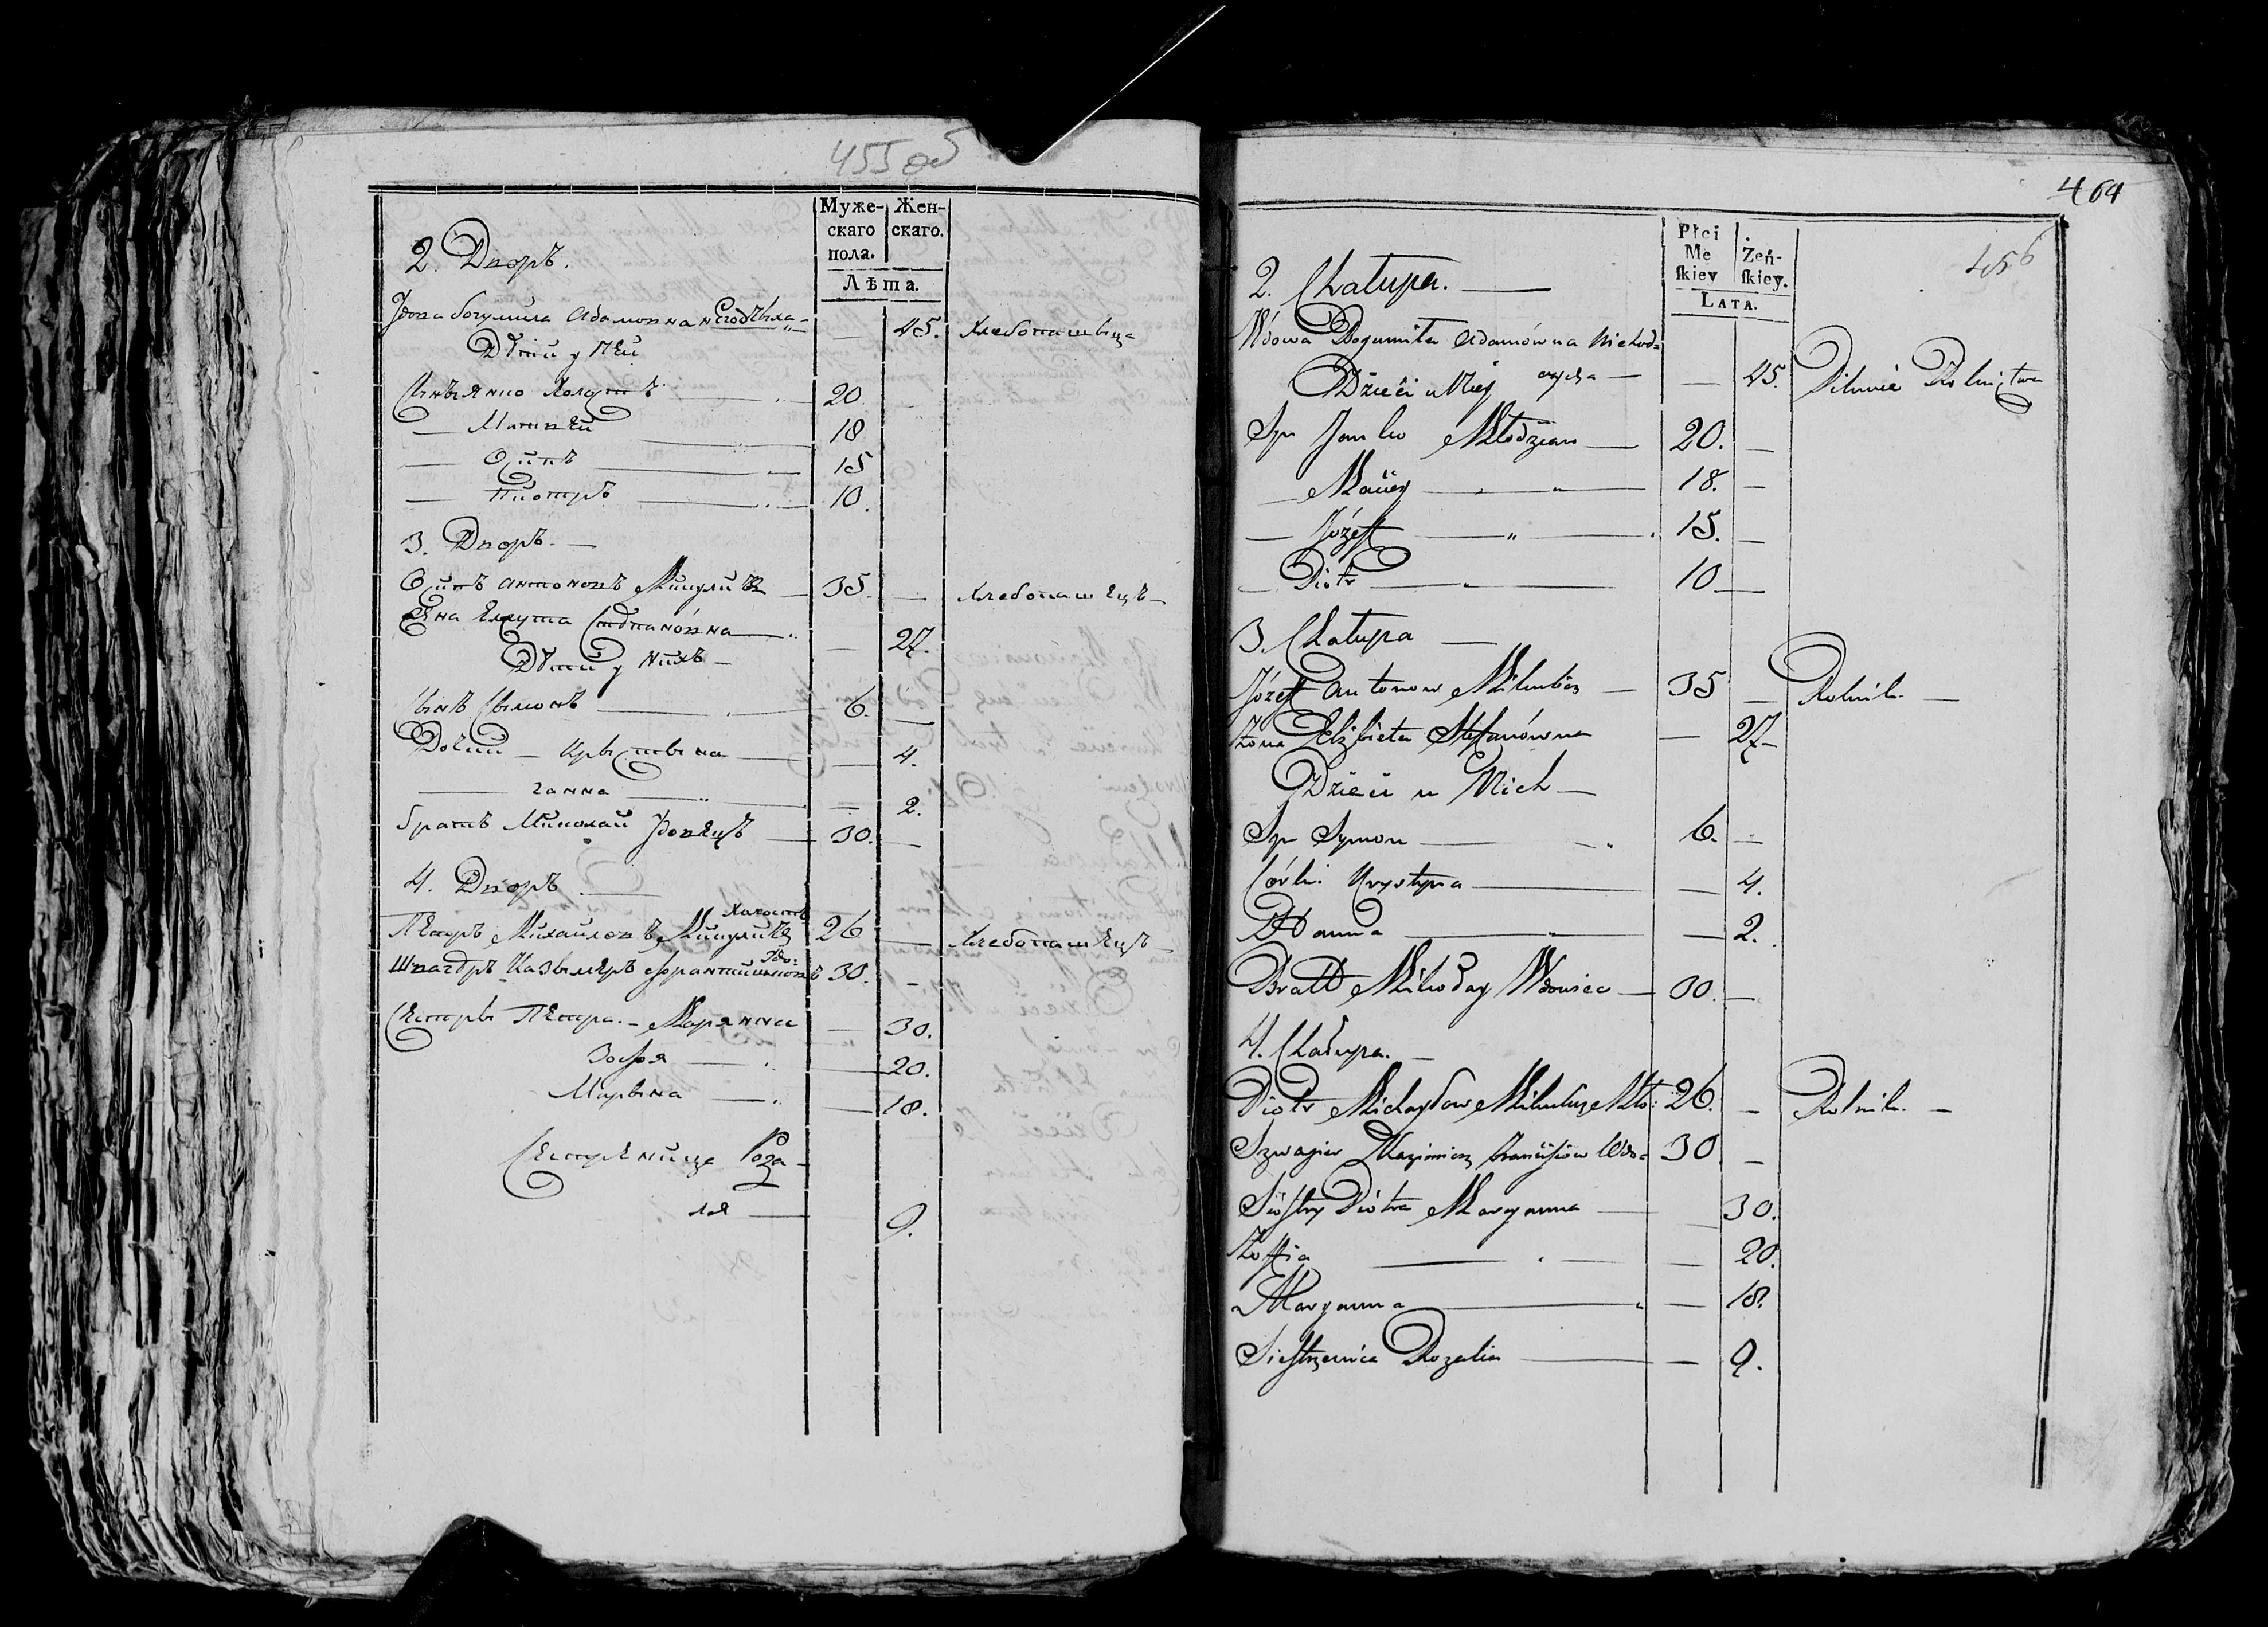 455 об
Муже- Жен-
скаго скаго.
пола.
Лѣта.
2. Дворъ.
Удова богумила адамовна
45. Хлебопашвца
Дѣти у Ней
Сынъ Янко Холостъ 20
— Матвей 18
— Осипъ 15
— Пиотръ 10.
3. Дворъ. —
Осипъ антоновъ Микуличъ — 35. — Хлебопашецъ —
Жена Елжута Стэпановна — 27.
Дѣти у Нихъ —
Сынъ Сымонъ — 6. —
Дочки — Крыстына — 4.
— ганна — 2.
братъ Миколай Удовецъ — 30. —
4. Дворъ
Холостъ
Петръ Михайловъ Микуличъ 26 — Хлебопашецъ —
Удо:
Швагръ Казымеръ франтишковъ 30. —
Сестры Петра. — Марянна — 30.
Зофия — 20.
Марына — 18.
Сестреница Роза-
лия — 9.
464
456
Płci
Me Żeń-
ſkiey ſkiey.
LATA.
2. Chałupa. —
Wdowa Bogumiła Adamówna Niehod=
Dzieci u Niey — 45. Pilnuie Rolnictwa
Syn Janko Młodzian — 20. —
— Maciey — 18. —
— Józeff — 15. —
— Piotr — 10 —
3. Chałupa —
Józeff Antonow Mikulicz — 35 — Rolnik —
Żona Elżbieta Stefanówna — 27 —
Dzieci u Nich —
Syn Symon — 6. —
Córki Krystyna — 4.
Hanna — 2.
Bratt Mikołay Wdowiec — 30. —
4. Chałupa. —
Piotr Michayłow Mikulicz Mło: 26. — Rolnik. —
Szwagier Kazimierz Franciszkow Wdo= 30 —
Siostry Piotra Maryanna — 30.
Zoffia — 20.
Maryanna — 18.
Siestrzenica Rozalia — 9.